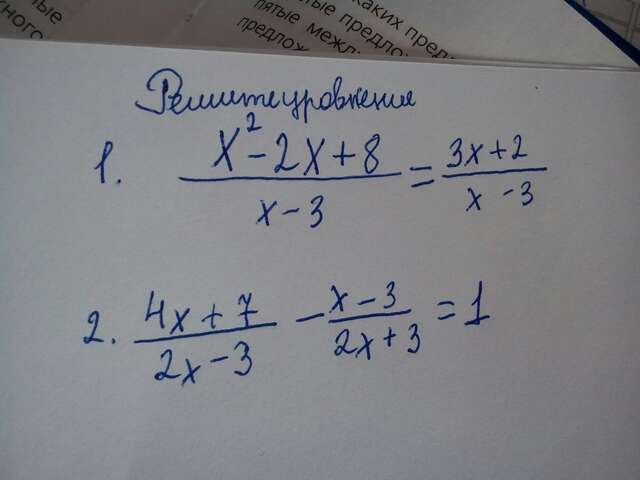 ные
ного
каких пред
пятые предло
пятые межд
предлож
Решите уровнения
1. \frac{x^2-2x+8}{x-3} = \frac{3x+2}{x-3}
2. \frac{4x+7}{2x-3} - \frac{x-3}{2x+3} = 1